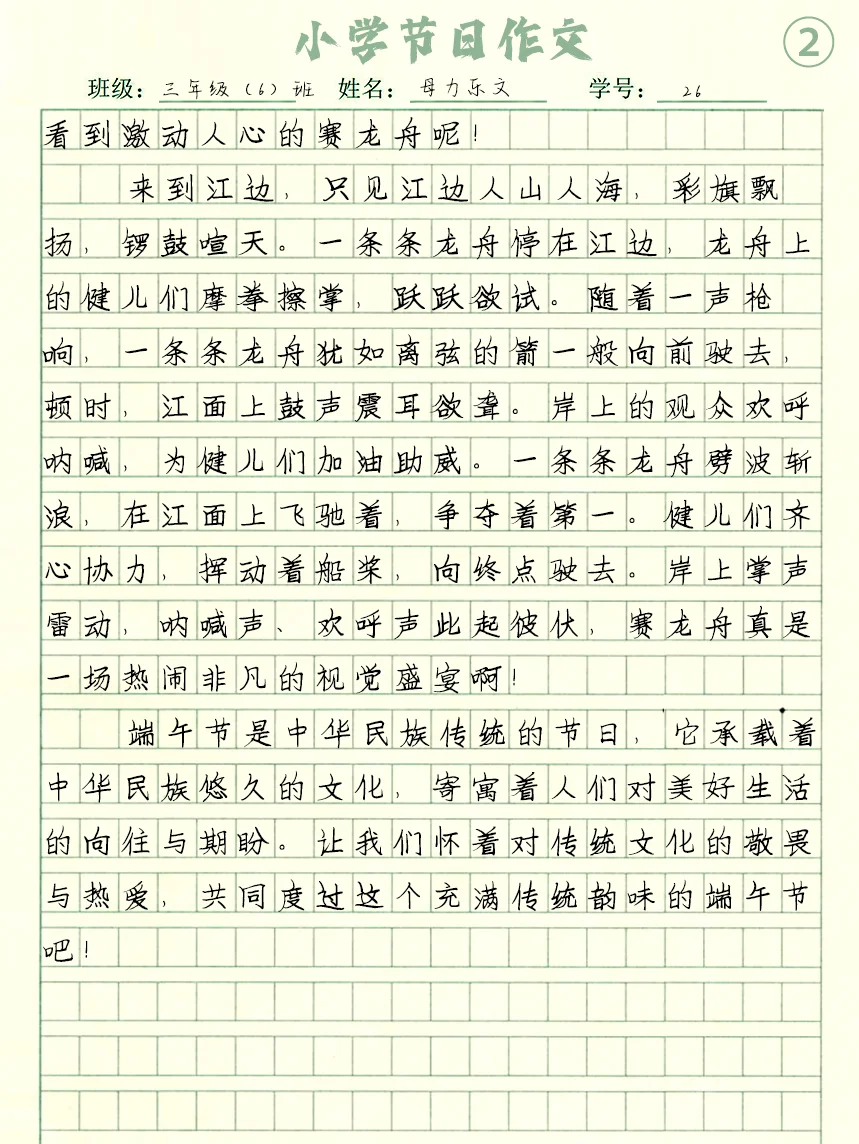 小学节日作文
②
班级：三年级（6）班 姓名：母力乐文 学号：26
看到激动人心的赛龙舟呢！
来到江边，只见江边人山人海，彩旗飘
扬，锣鼓喧天。一条条龙舟停在江边，龙舟上
的健儿们摩拳擦掌，跃跃欲试。随着一声枪
响，一条条龙舟犹如离弦的箭一般向前驶去，
顿时，江面上鼓声震耳欲聋。岸上的观众欢呼
呐喊，为健儿们加油助威。一条条龙舟劈波斩
浪，在江面上飞驰着，争夺着第一。健儿们齐
心协力，挥动着船桨，向终点驶去。岸上掌声
雷动，呐喊声、欢呼声此起彼伏，赛龙舟真是
一场热闹非凡的视觉盛宴啊！
端午节是中华民族传统的节日，它承载着
中华民族悠久的文化，寄寓着人们对美好生活
的向往与期盼。让我们怀着对传统文化的敬畏
与热爱，共同度过这个充满传统韵味的端午节
吧！